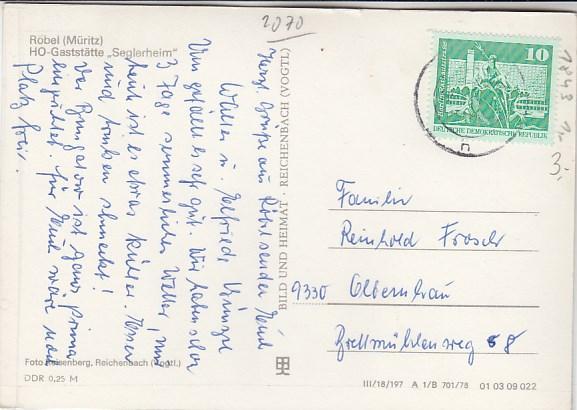 2070
Röbel (Müritz)
HO-Gaststätte „Seglerheim"
Herzl. Grüße aus Röbel senden Euch
Walter u. Elfriede
Uns gefällt es sehr gut. Wir haben schon
3 Tage sommerliches Wetter, nur
heute ist es etwas kühler. Essen
und trinken schmeckt!
Der Bungalow ist ganz prima
eingerichtet. Für Euch wäre noch
Platz frei.
Foto Reisenberg, Reichenbach (Vogtl.)
DDR 0,25 M
BILD UND HEIMAT · REICHENBACH (VOGTL)
10
DEUTSCHE DEMOKRATISCHE REPUBLIK
1843
3,-
Familie
Reinhold Frosch
9330 Olbernhau
Brettmühlenweg 8
III/18/197 A 1/B 701/78 01 03 09 022